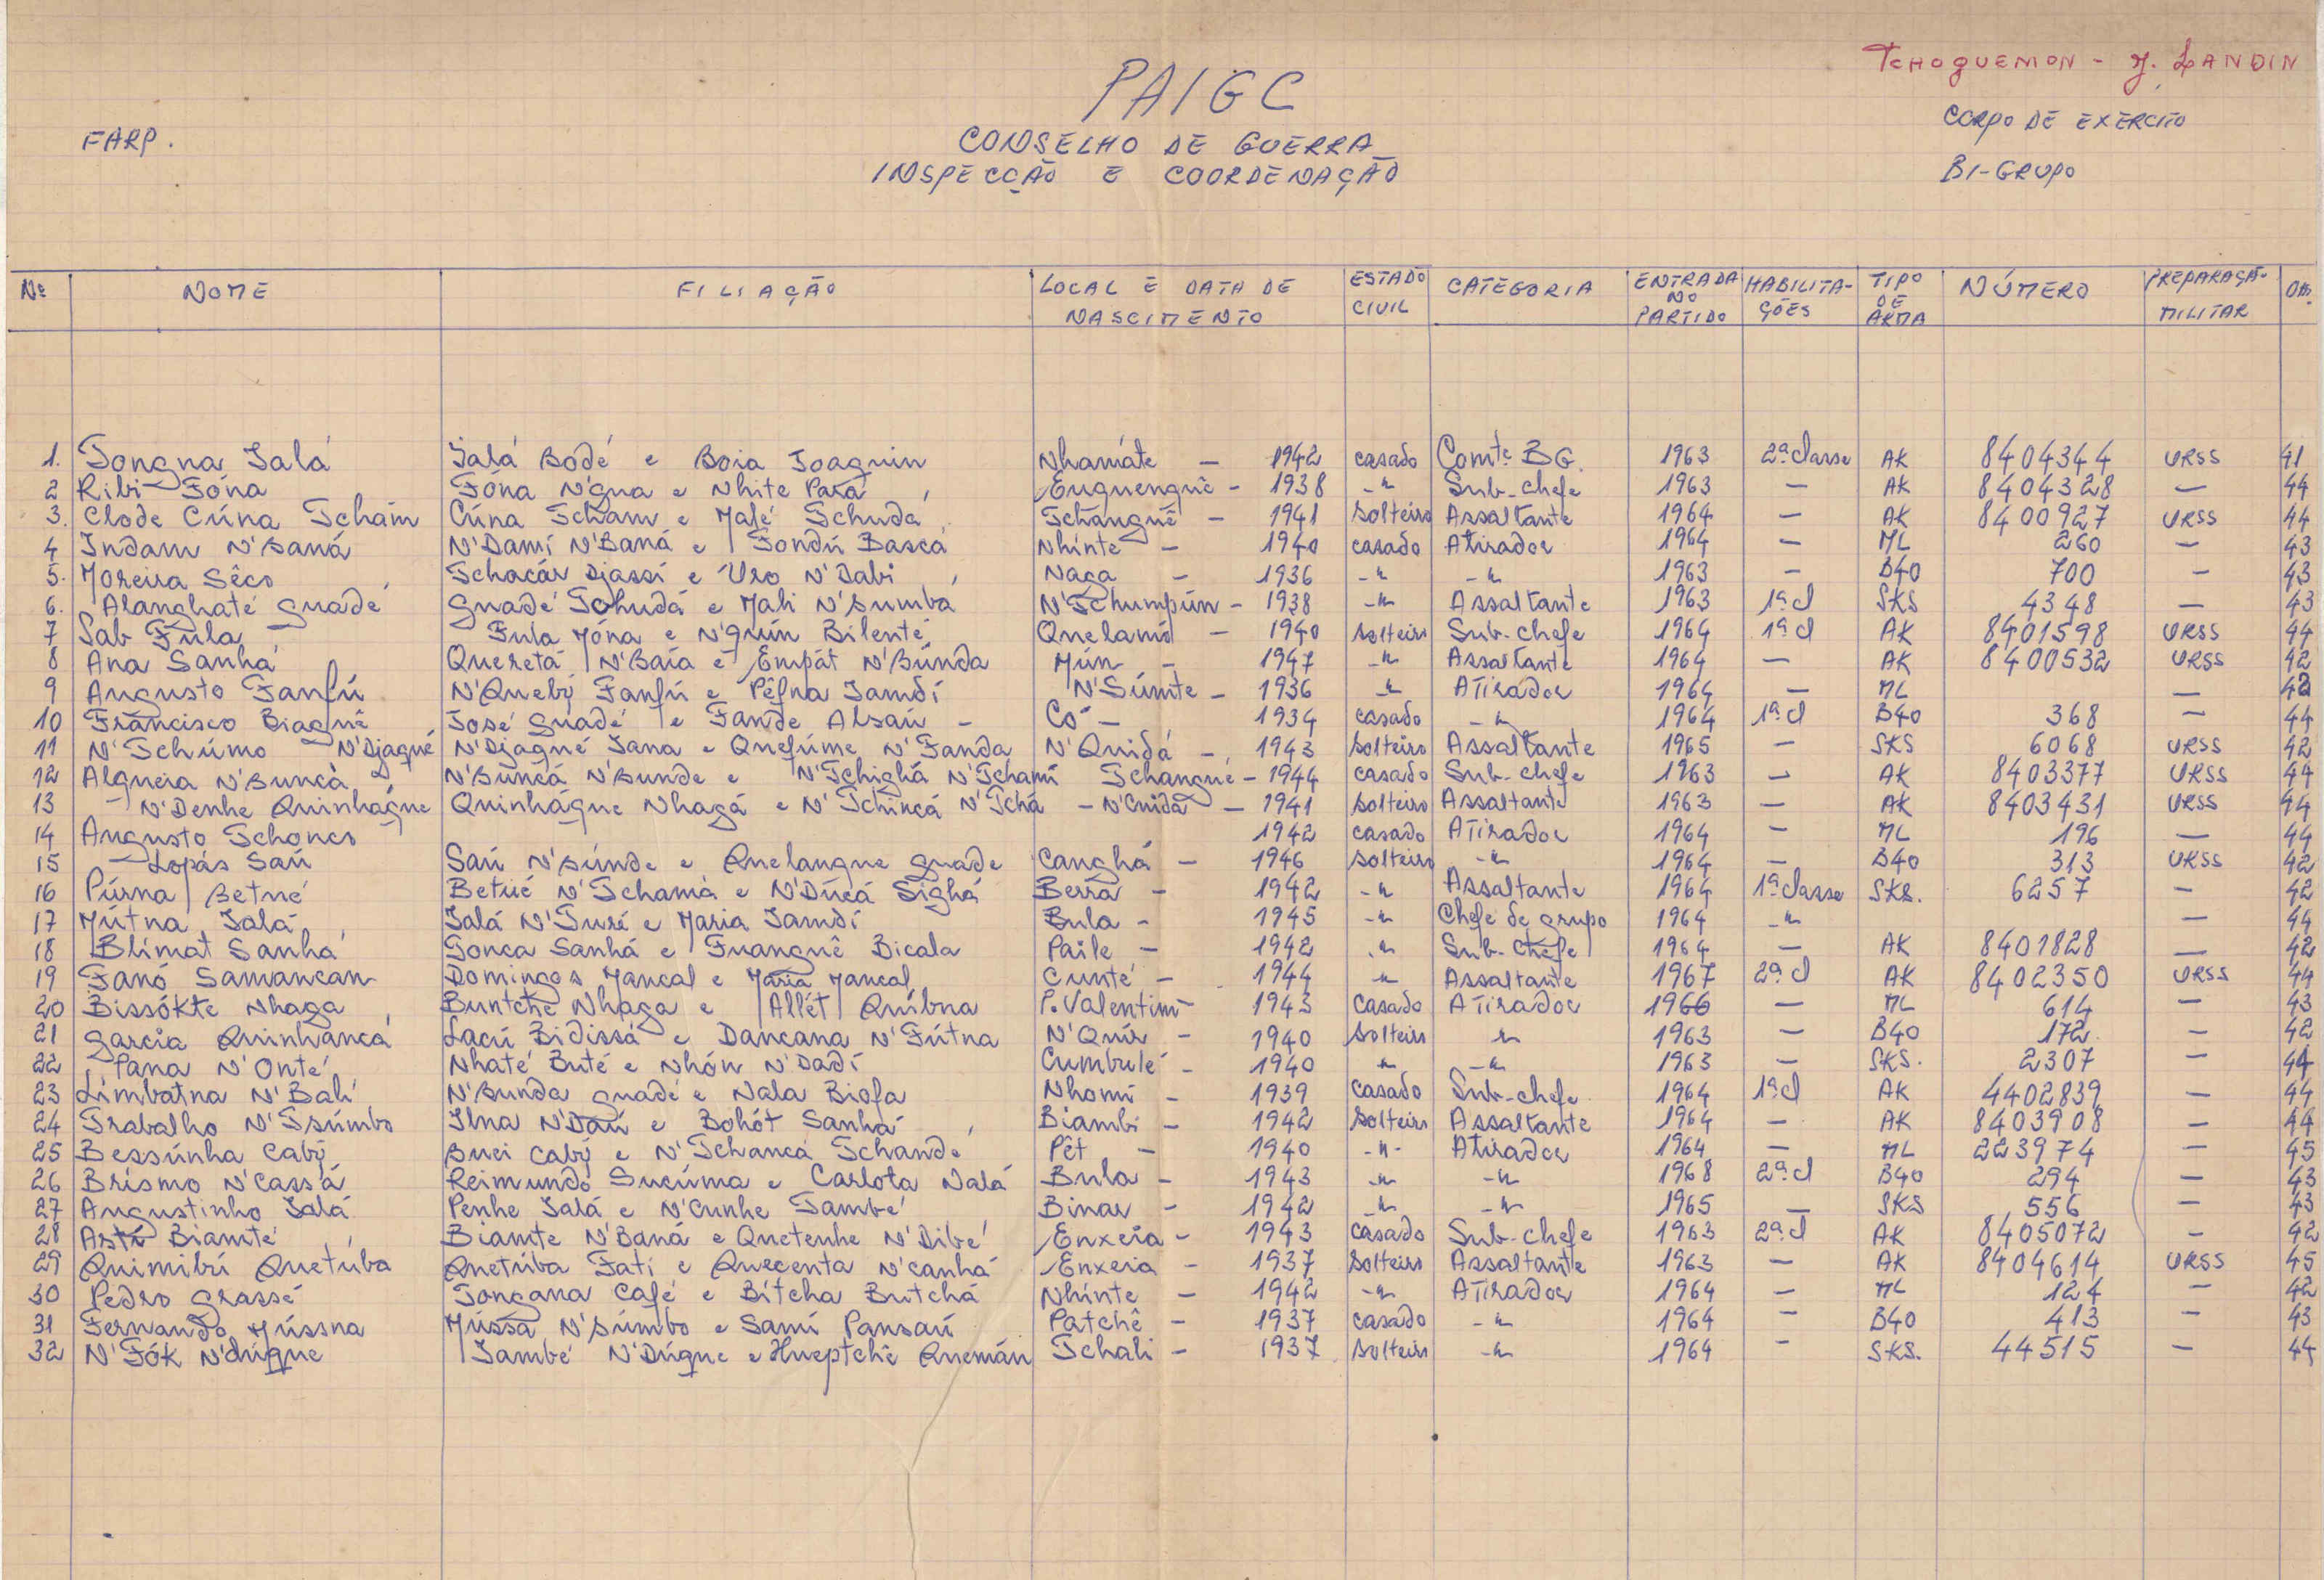 TCHOGUEMON - J. LANDIN
PAIGC
CORPO DE EXERCITO
FARP.
CONSELHO DE GUERRA
BI-GRUPO
INSPECÇÃO E COORDENAÇÃO
Nº NOME FILIAÇÃO LOCAL E DATA DE NASCIMENTO ESTADO CIVIL CATEGORIA ENTRADA NO PARTIDO HABILITAÇÕES TIPO DE ARMA NÚMERO PREPARAÇÃO MILITAR Obs.
1. Tongna Ialá Ialá Bodé e Boia Joaquin Nhamáte - 1942 casado Comte BG. 1963 2ª classe AK 8404344 URSS 41
2 Ribi Fóna Fóna N'gua e Nhite Pará Euquenquê - 1938 -"- Sub-chefe 1963 - AK 8404328 - 44
3. Clode Cúna Tchám Cúna Tcham e Mafé Tchuda Tchanguê - 1941 Solteiro Assaltante 1964 - AK 8400927 URSS 44
4 Indam N'Baná N'Damí N'Baná e Fondú Bascá Nhínte - 1940 casado Atirador 1964 - ML 260 - 43
5. Moreira Sêco Tchacár Djassí e Uro N'Dabi Naga - 1936 -"- -"- 1963 - B40 700 - 43
6. Alanghaté guadé guadé Tchudá e Mali N'Bumbá N'Tchumpún - 1938 -"- Assaltante 1963 1ª cl SKS 4348 - 43
7 Sab Fula Fula Móna e N'quin Bilenté Quelamó - 1940 Solteiro Sub-chefe 1964 1ª cl AK 8401598 URSS 44
8 Ana Sanhá Queretá N'Baía e Empát N'Búnda Mún - 1947 -"- Assaltante 1964 - AK 8400532 URSS 42
9 Augusto Fanfú N'Queby Fanfú e Pêfna Iamdí N'Súmte - 1936 -"- Atirador 1964 - ML - 42
10 Francisco Biaguê José guadé e Fande Alsau - Có - 1934 casado -"- 1964 1ª cl B40 368 - 44
11 N'Tchúmo N'Djagué N'Djagué Iana e Quefúme N'Fanda N'Quidá - 1943 Solteiro Assaltante 1965 - SKS 6068 URSS 42
12 Algueia N'Buncá N'Buncá N'Bunde e N'Tchighá N'Tchamí Tchangué - 1944 casado Sub-chefe 1963 - AK 8403377 URSS 44
13 N'Denhe Quinhágue Quinhágue Nhagá e N'Tchincá N'Tchá - N'Cuidá - 1941 Solteiro Assaltante 1963 - AK 8403431 URSS 44
14 Augusto Tchoncs 1942 casado Atirador 1964 - ML 196 - 44
15 Lopás Saú Saú N'Búnde e Quelangue guade Canghá - 1946 Solteiro -"- 1964 - B40 313 URSS 42
16 Púrna Betué Betué N'Tchamá e N'Dúcá Sighá Berrá - 1942 -"- Assaltante 1964 1ª classe SKS. 6257 - 42
17 Mútna Ialá Ialá N'Turé e Maria Iamdí Bula - 1945 -"- Chefe de grupo 1964 -"- - 44
18 Blimat Sanhá Tonca Sanhá e Fuanguê Bicala Paile - 1942 -"- Sub-chefe 1964 - AK 8401828 - 42
19 Fanó Samancan Domingos Mancal e Maria Mancal Cunté - 1944 -"- Assaltante 1967 2ª cl AK 8402350 URSS 44
20 Bissókte Nhaga Buntche Nhaga e Allét Quíbna P. Valentim - 1943 Casado Atirador 1966 - ML 614 - 43
21 garcia Quinhancá Lacú Bidissá e Dancana N'Fútna N'Quír - 1940 Solteiro " 1963 - B40 172. - 42
22 Pana N'Onté Nhaté Buté e Nhón N'Dadí Cumbulé - 1940 " -"- 1963 - SKS. 2307 - 44
23 Limbatna N'Balí N'Bunda guadé e Nala Biofa Nhomí - 1939 casado Sub-chefe 1964 1ª cl AK 4402839 - 44
24 Trabalho N'Tsúmbo Ilna N'Daú e Bohót Sanhá Biambi - 1942 Solteiro Assaltante 1964 - AK 8403908 - 44
25 Bessúnha Caby Buei Caby e N'Tchanca Tchandé Pêt - 1940 -"- Atirador 1964 - ML 223974 - 45
26 Brismo N'Cassá Reimundo Sucúma e Carlota Nalá Bula - 1943 -"- -"- 1968 2ª cl B40 294 - 43
27 Augustinho Ialá Penhe Ialá e N'Cunhe També Binar - 1942 -"- -"- 1965 - SKS 556 - 43
28 Astú Biamté Biamte N'Baná e Quetenhe N'Dibé Enxeia - 1943 casado Sub-chefe 1963 2ª cl AK 8405072 - 42
29 Quimibú Quetúba Quetúba Fatí e Quecenta N'canhá Enxeia - 1937 Solteiro Assaltante 1963 - AK 8404614 URSS 45
30 Pedro grassé Tongana Café e Bitcha Butchá Nhínte - 1942 -"- Atirador 1964 - ML 124 - 42
31 Fernando Mússna Mússá N'Búmbo e Samí Pansaú Patchê - 1937 casado -"- 1964 - B40 413 - 43
32 N'Fók N'dúque Iambé N'Dúque e Hueptchê Quemán Tchali - 1937 Solteiro -"- 1964 - SKS. 44515 - 44